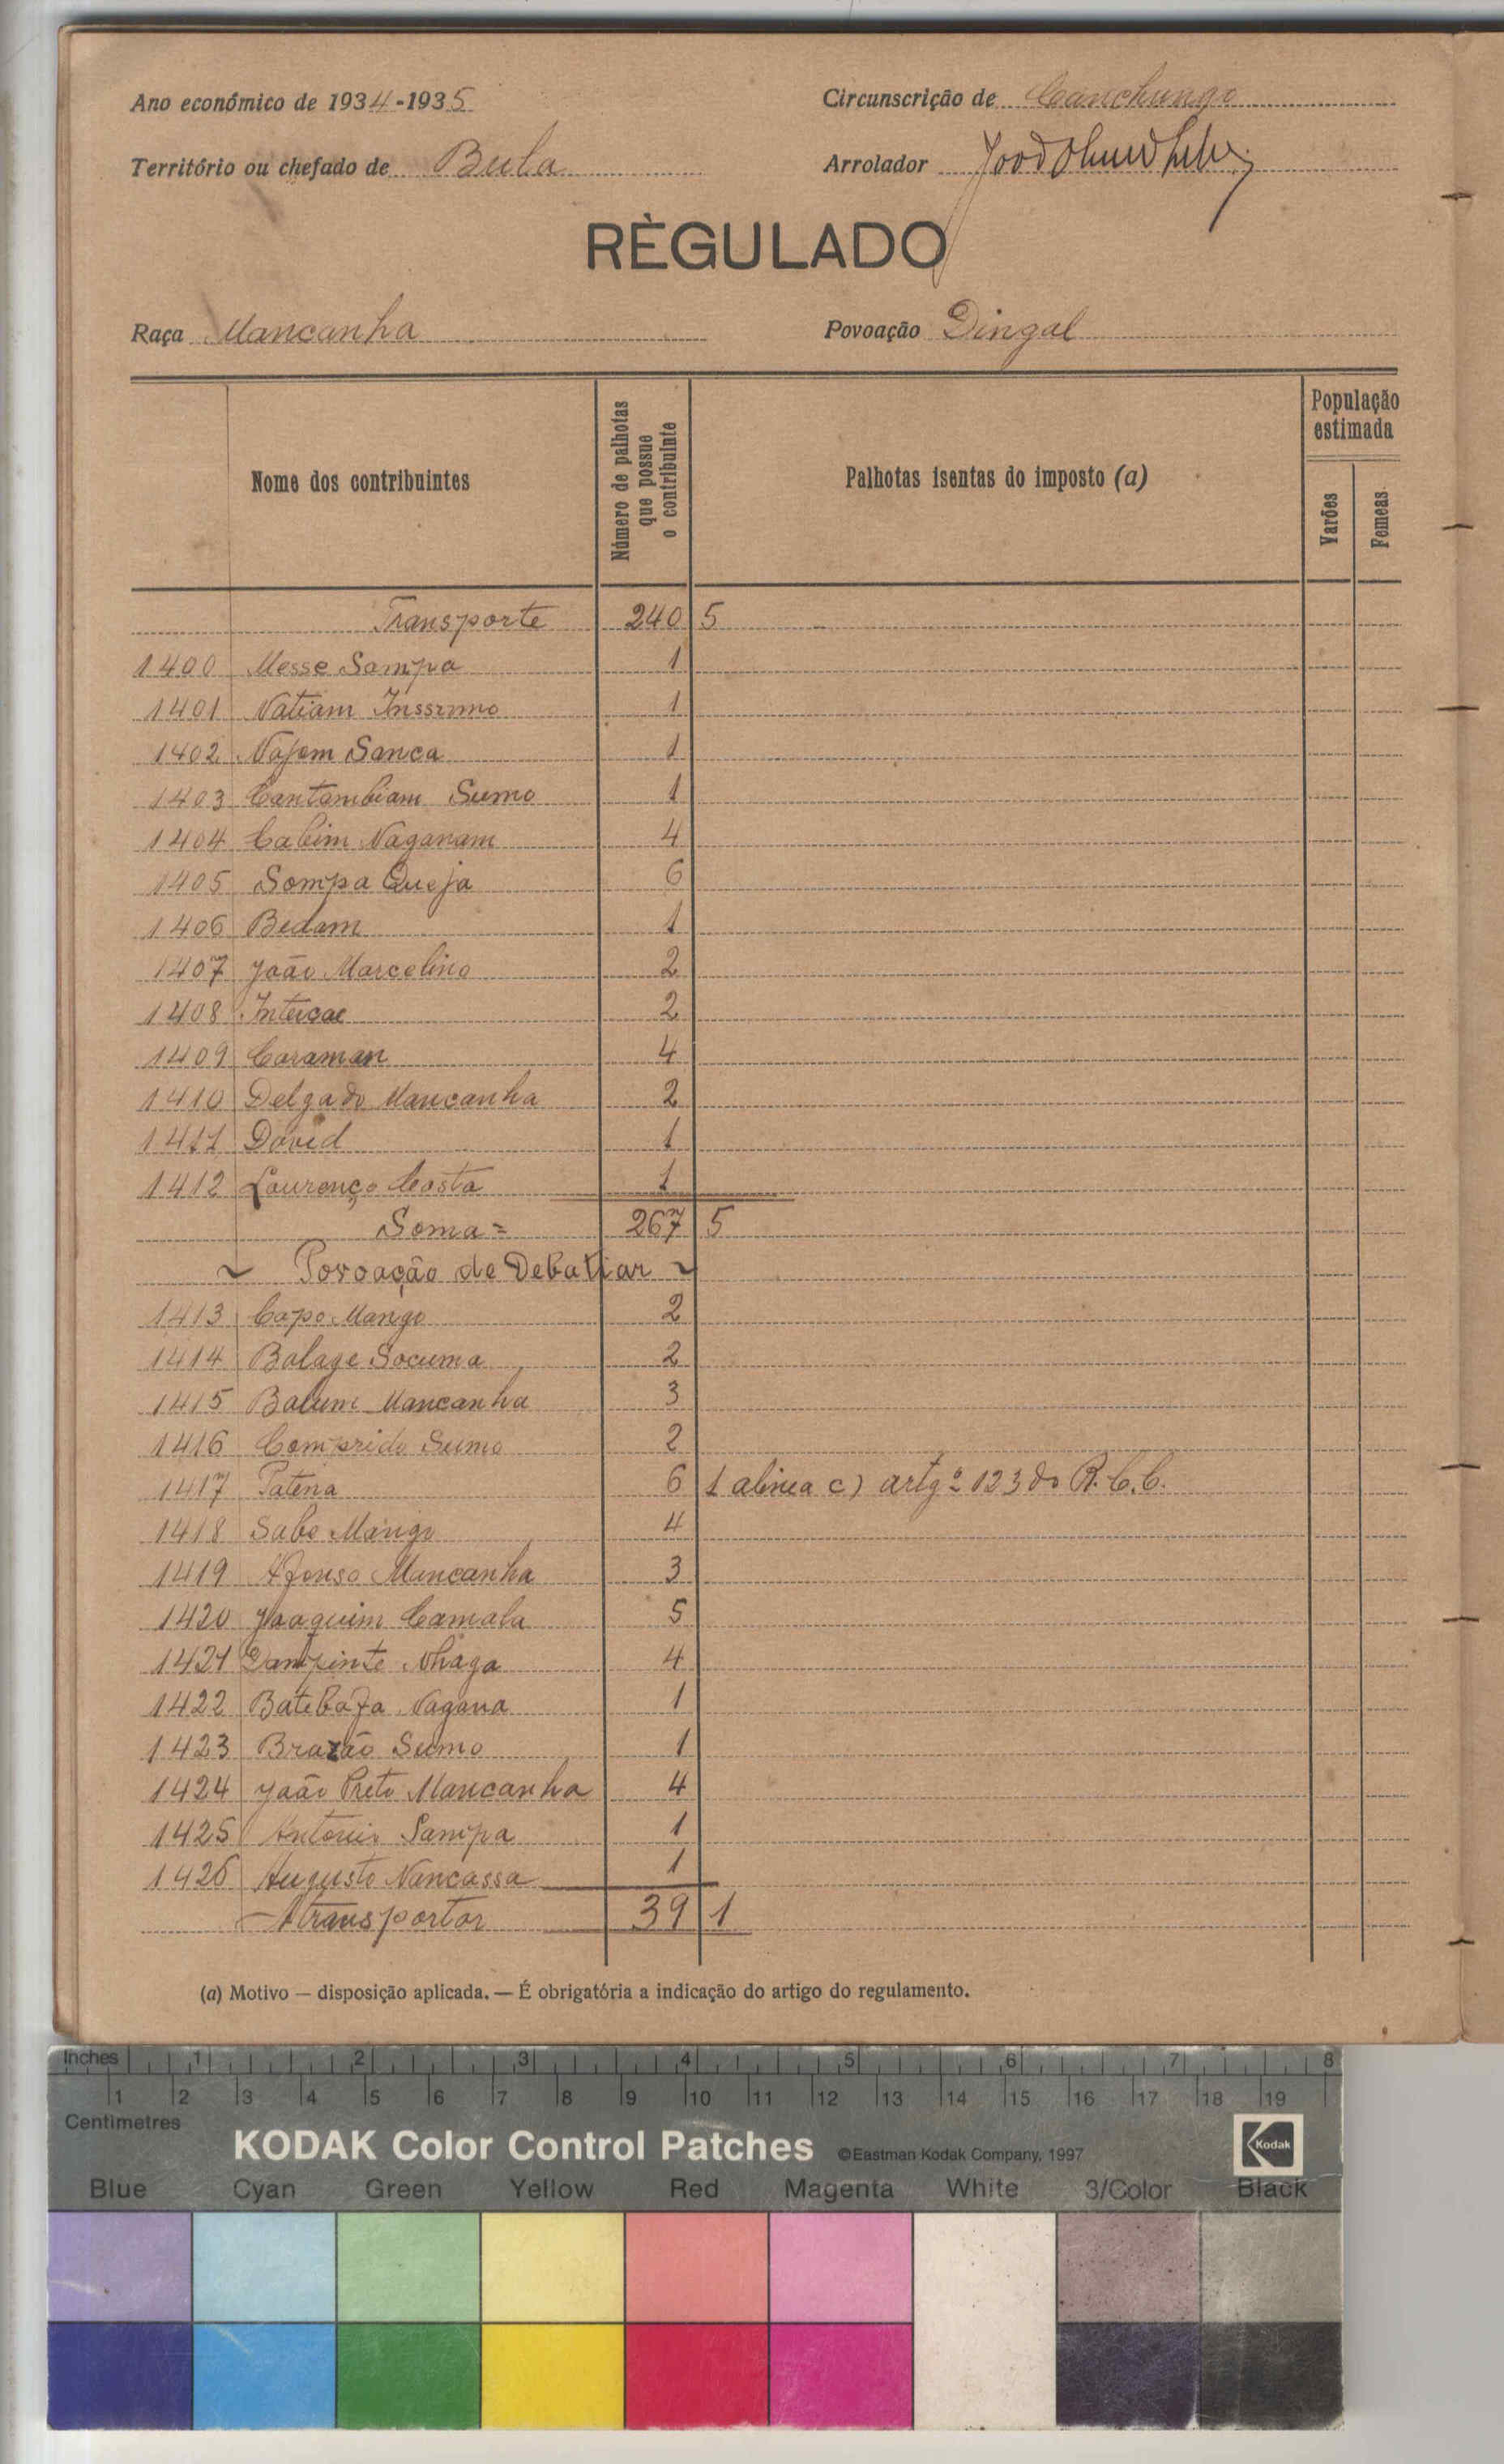 Ano económico de 1934-1935
Circunscrição de Canchungo
Território ou chefado de Bula
Arrolador
RÈGULADO
Raça Mancanha
Povoação Dingal
Nome dos contribuintes
Número de palhotas que possue o contribuinte
Palhotas isentas do imposto (a)
População estimada
Varões
Femeas
Transporte 240 5
1400 Messe Sampa 1
1401 Natiam 1
1402 Najem Sanca 1
1403 Cantambiam Sumo 1
1404 Cabim Naganam 4
1405 Sompa Queja 6
1406 Bedam 1
1407 João Marcelino 2
1408 2
1409 Caraman 4
1410 Delgado Mancanha 2
1411 David 1
1412 Lourenço Costa 1
Soma = 267 5
~ Povoação de Debatiar ~
1413 Capo Mango 2
1414 Balage Socuma 2
1415 Mancanha 3
1416 Comprido Sumo 2
1417 Patena 6 1 alinea c) artgº 123 do R.C.C.
1418 Sabo Mango 4
1419 Afonso Mancanha 3
1420 Joaquim Camala 5
1421 Nhaga 4
1422 Batebafa Nagana 1
1423 Brazão Sumo 1
1424 João Preto Mancanha 4
1425 Antonio Sampa 1
1426 Augusto Nancassa 1
A transportar 39 1
(a) Motivo — disposição aplicada. — É obrigatória a indicação do artigo do regulamento.
Inches 1 2 3 4 5 6 7 8
1 2 3 4 5 6 7 8 9 10 11 12 13 14 15 16 17 18 19
Centimetres
KODAK Color Control Patches ©Eastman Kodak Company, 1997 Kodak
Blue Cyan Green Yellow Red Magenta White 3/Color Black